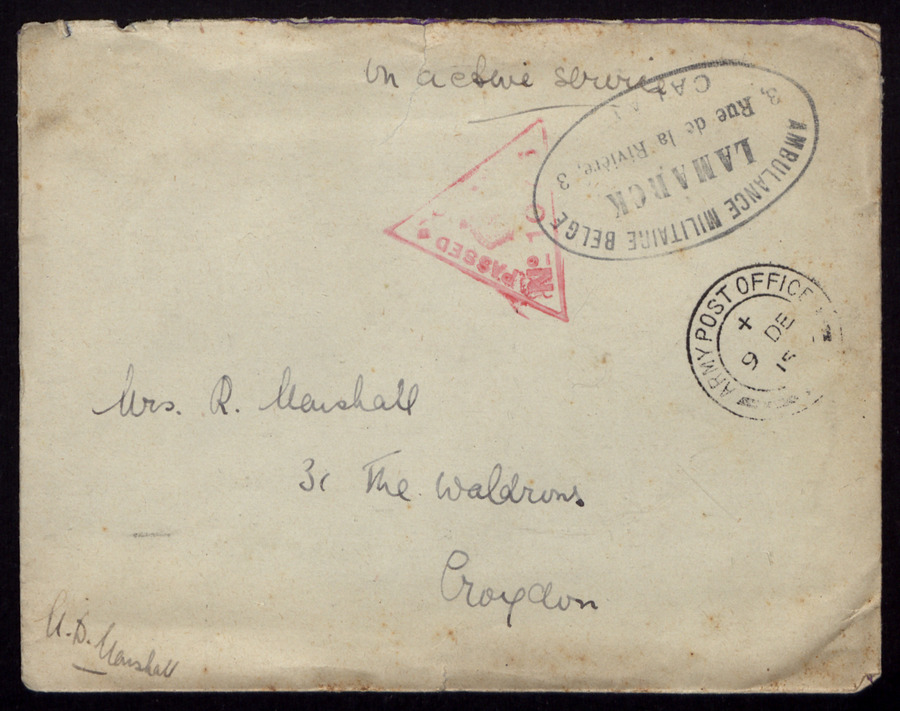 on active service
AMBULANCE MILITAIRE BELGE
LAMARCK
Rue de la Rivière, 3
PASSED
No
ARMY POST OFFICE
X
9 DE
15
Mrs. R. Marshall
31 The Waldrons
Croydon
Marshall